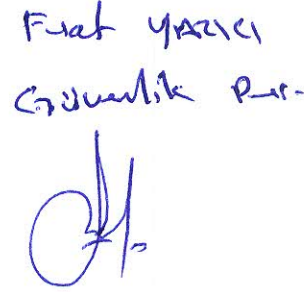 Fırat YAZICI
Güvenlik Per.